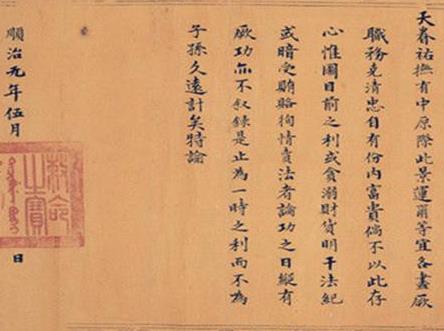 天眷祐撫有中原際此景運爾等宜各盡厥
職務克清忠自有份内富貴倘不以此存
心惟圖目前之利或貪溺財貨明干法紀
或暗受賄賂狥情賣法者論功之日縱有
厥功亦不叙錄是止為一時之利而不為
子孫久遠計矣特諭
順治元年伍月 日
敕命之寶